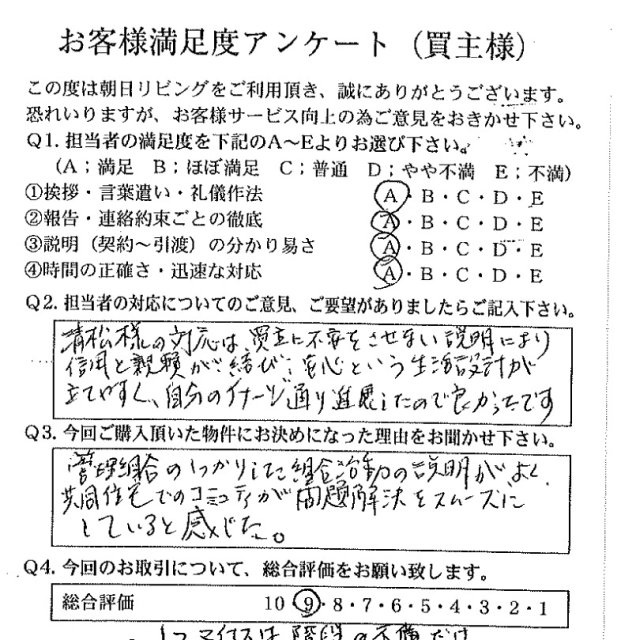 お客様満足度アンケート（買主様）
この度は朝日リビングをご利用頂き、誠にありがとうございます。
恐れいりますが、お客様サービス向上の為ご意見をおきかせ下さい。
Q1. 担当者の満足度を下記のA～Eよりお選び下さい。
（A；満足　B；ほぼ満足　C；普通　D；やや不満　E；不満）
①挨拶・言葉遣い・礼儀作法 A・B・C・D・E
②報告・連絡約束ごとの徹底 A・B・C・D・E
③説明（契約～引渡）の分かり易さ A・B・C・D・E
④時間の正確さ・迅速な対応 A・B・C・D・E
Q2. 担当者の対応についてのご意見、ご要望がありましたらご記入下さい。
清松様の対応は、買主に不安をさせない説明により
信用と親頼が結び、安心という生活設計が
立てやすく、自分のイメージ通り進展したので良かったです
Q3. 今回ご購入頂いた物件にお決めになった理由をお聞かせ下さい。
管理組合のしっかりした組合活動の説明がよく、
共同住宅でのコミュニティが問題解決をスムーズに
していると感じた。
Q4. 今回のお取引について、総合評価をお願い致します。
総合評価 10・9・8・7・6・5・4・3・2・1